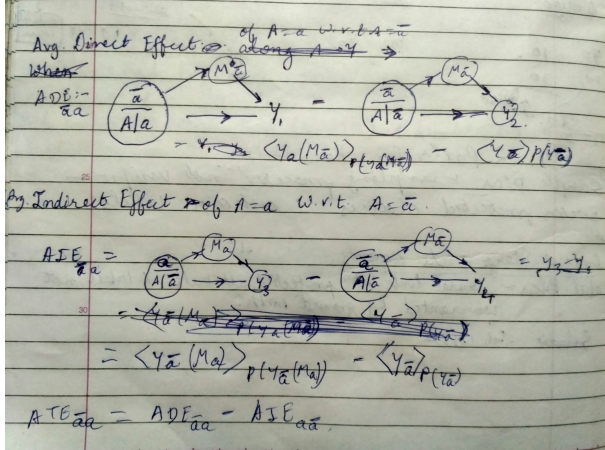 Avg. Direct Effect of A=a w.r.t A=ā
along A→Y →
When
ADE āa :-
ā
A|a
Mā
Y₁
-
ā
A|ā
Mā
Y₂
= <Ya(Mā)>p(Ya(Mā)) - <Yā>p(Yā)
25
Avg. Indirect Effect of A=a w.r.t A=ā.
AIE āa =
ā
A|ā
Ma
Y₃
-
ā
A|ā
Mā
Y₄
= Y₃-Y₄
30
= <Yā(Ma)>p(Ya(Ma)) - <Yā>p(Yā)
= <Yā(Ma)>p(Yā(Ma)) - <Yā>p(Yā)
ATE āa = ADE āa - AIE aā